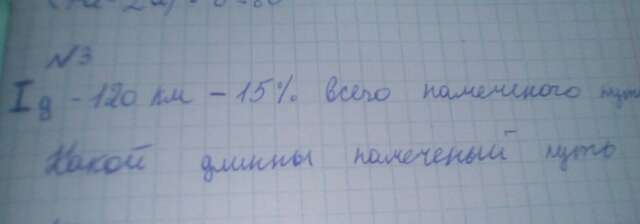 №3
I д - 120 км - 15% всего намеченого пути
Какой длинны намеченый путь